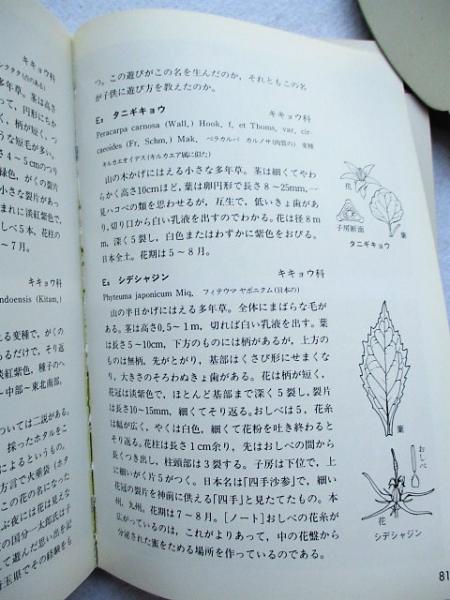 キキョウ科
シククク(点のある)
って，円形にちか
あり，茎は高さ
く，柄が短く，つ
ような短毛が多い。
さ4～5cmのつり
緑色，がくの裂片
な小さな裂片があっ
まれに淡紅紫色で，
しべ5本，花柱の
～7月。
キキョウ科
ndoensis (Kitam,)
る変種で，がくの
めるだけで，そり返
淡紅紫色，種子のへ
～中部～東北南部，
ついては二説がある。
採ったホタルをこ
によるというもの。
方言で火垂袋（ホタ
この花の名になった
ぶ夜には花は見えな
の国分一太郎氏は子
て遊んだ思い出を記
玉県でその経験をも
つ。この遊びがこの名を生んだのか，それともこの名
が子供に遊び方を教えたのか。
E₂ タニギキョウ キキョウ科
Peracarpa carnosa (Wall,) Hook, f, et Thoms, var, cir-
caeoides (Fr, Schm,) Mak, ペラカルパ カルノサ(肉質の) 変種
キルカエオイデス(キルカエア属に似た)
山の木かげにはえる小さな多年草。茎は細くてやわ
らかく高さ10cmほど，葉は卵円形で長さ8～25mm，一
見ハコベの類を思わせるが，互生で，低いきょ歯があ
り，切り口から白い乳液を出すのでわかる。花は径8m
m，深く5裂し，白色またはわずかに紫色をおびる。
日本全土。花期は5～8月。
花
子房断面
葉
タニギキョウ
E₃ シデシャジン キキョウ科
Phyteuma japonicum Miq, フィテウマ ヤポニクム(日本の)
山の半日かげにはえる多年草。全体にまばらな毛が
ある。茎は高さ0,5～1m，切れば白い乳液を出す。葉
は長さ5～10cm，下方のものには柄があるが，上方の
ものは無柄，先がとがり，基部はくさび形にせまくな
り，大きさのそろわぬきょ歯がある。花は柄が短く，
花冠は淡紫色で，ほとんど基部まで深く5裂し，裂片
は長さ10～15mm，細くてそり返る。おしべは5，花糸
は幅が広く，やくは白色，細くて花粉を吐き終わると
そり返る。花柱は長さ1cm余り，先はおしべの間から
長くつき出し，柱頭部は3裂する。子房は下位で，上
に細いがく片5がつく。日本名は「四手沙参」で，細い
花冠の裂片を神前に供える「四手」と見たてたもの。本
州，九州。花期は7～8月。［ノート］おしべの花糸が
広がっているのは，これがよりあって，中の花盤から
分泌された蜜をためる場所を作っているのである。
葉
おしべ
花
シデシャジン
81